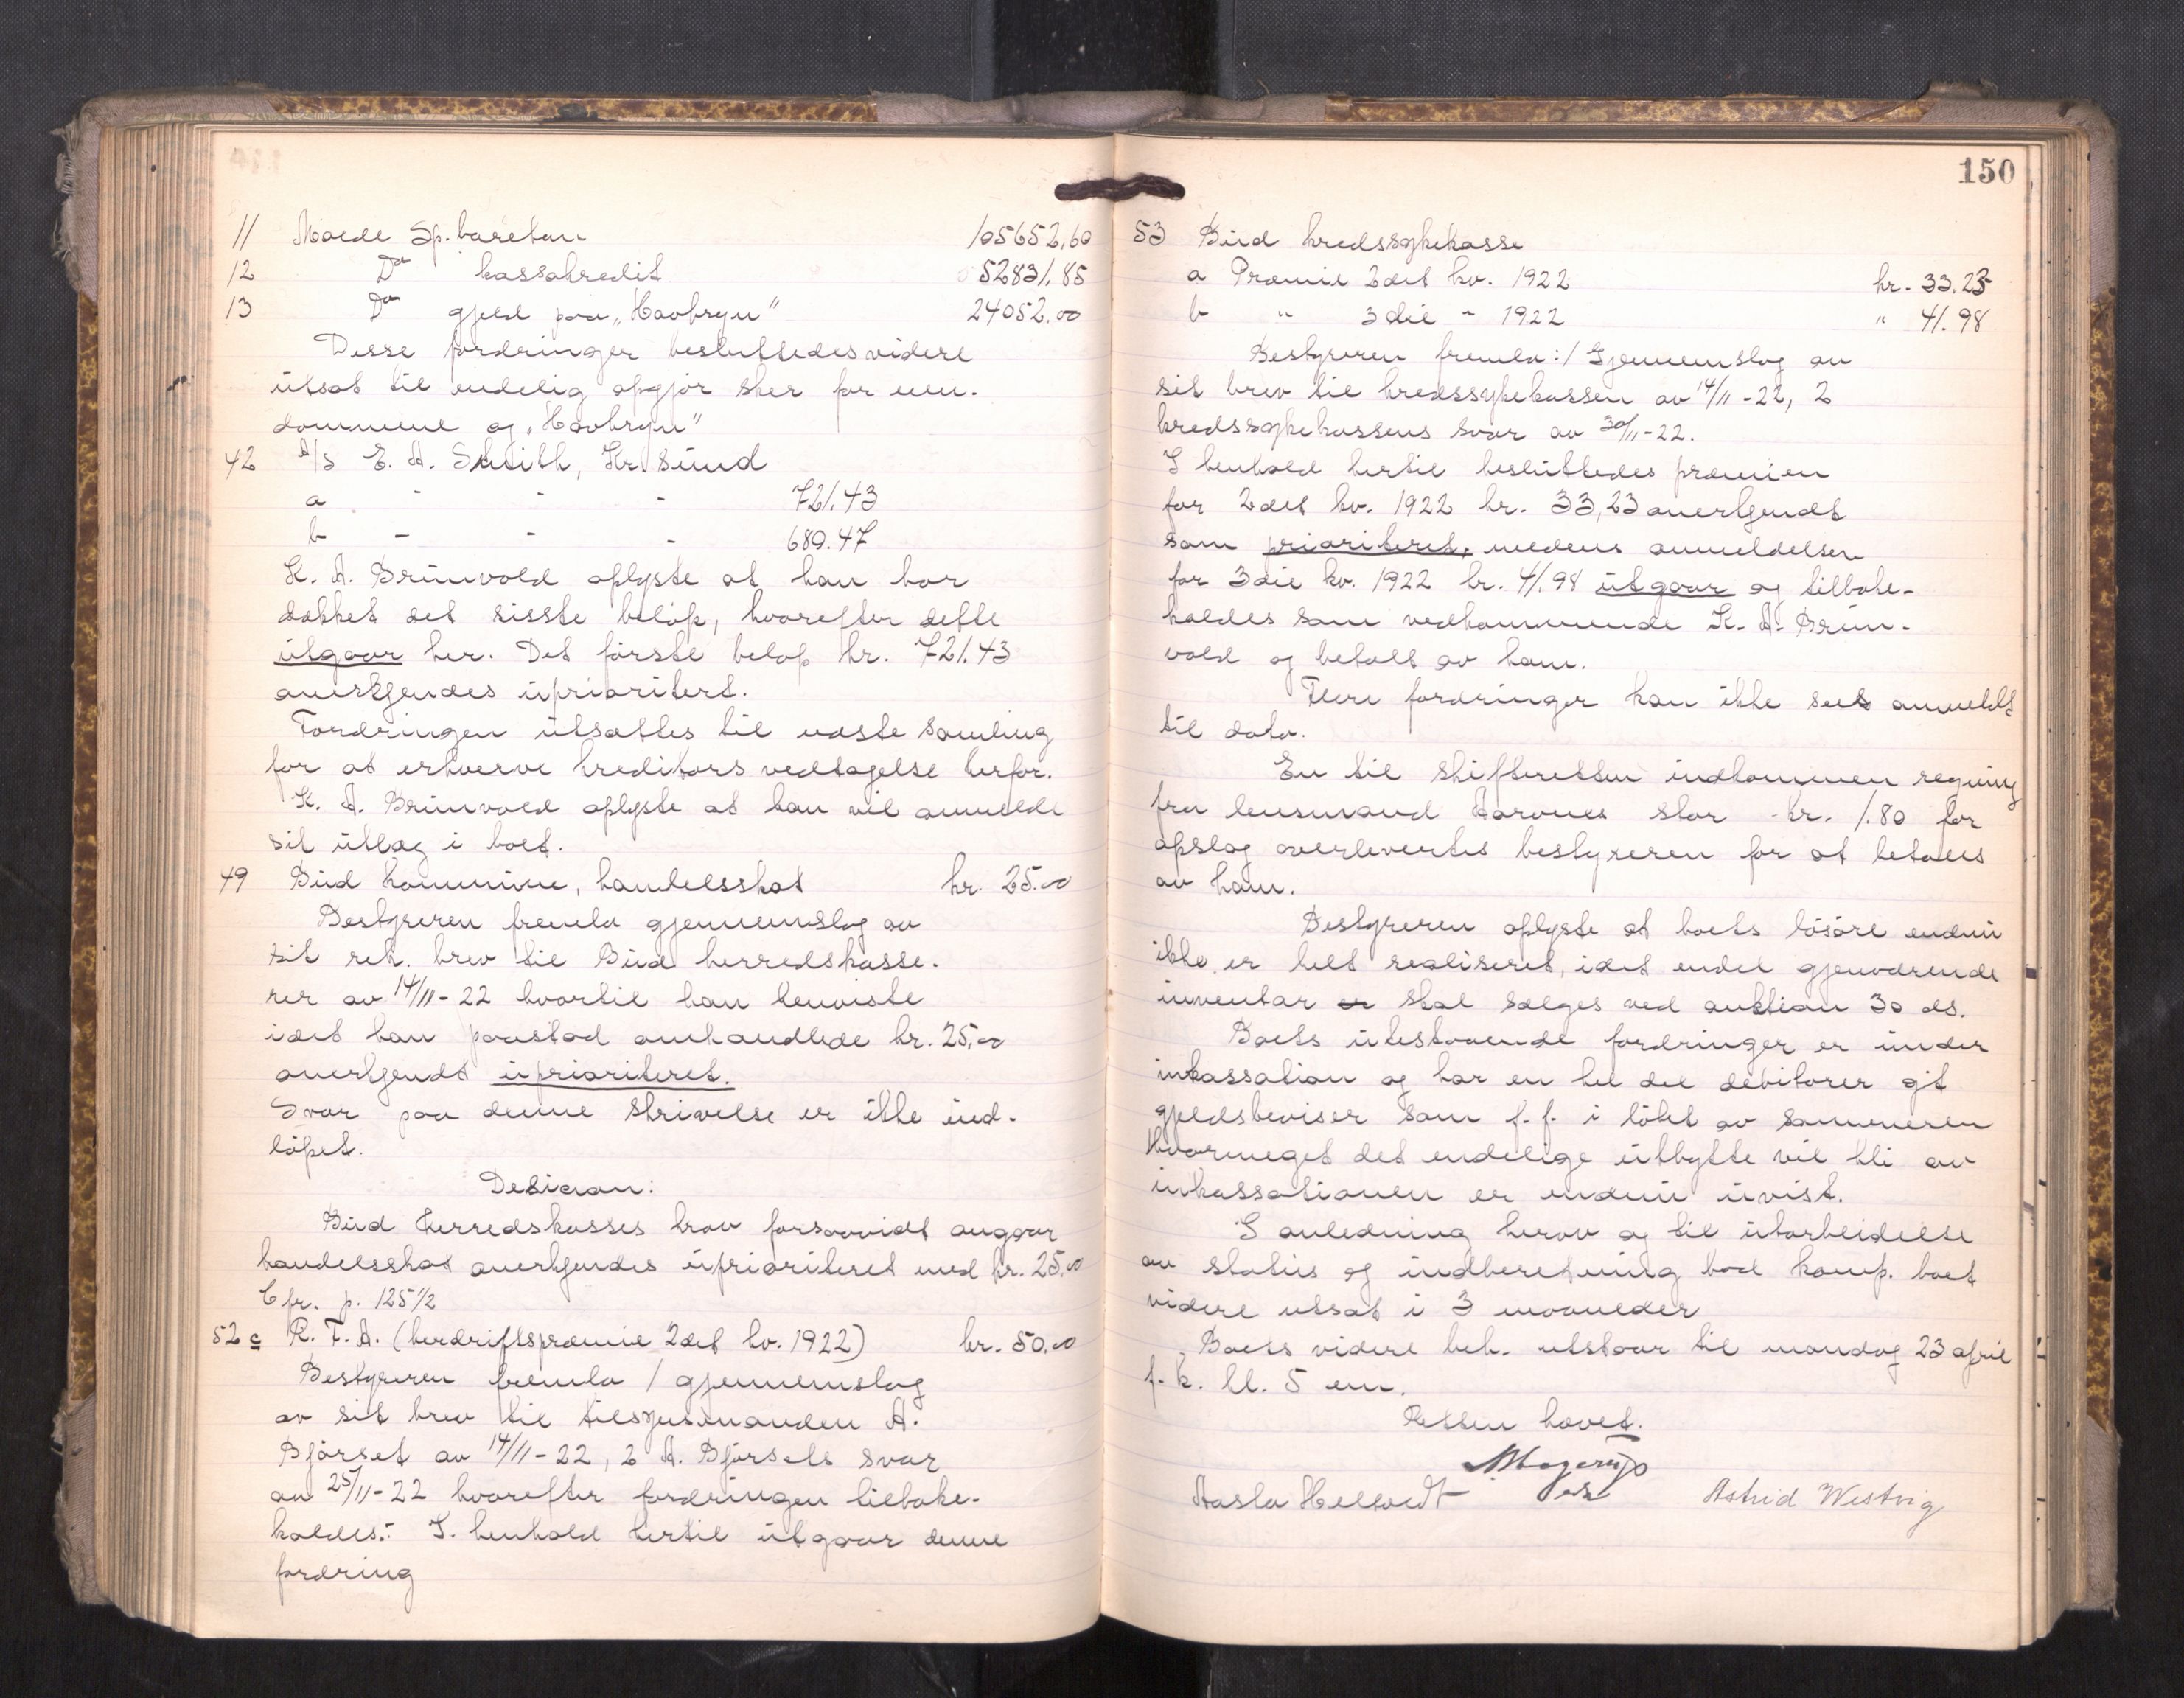 11 Molde Sp.bank etc. 105652,60
12 Do kassakredit 52831.85
13 Do gjeld paa „Havbryn" 24052.00
Disse fordringer besluttedes videre
utsat til endelig opgjør sker for eien-
dommene og „Havbryn"
42 A/S E. A. Smith, Kr.sund
a - - - 721.43
b - - - 689.47
K. A. Brunvold oplyste at han har
dækket det sisste beløp, hvorefter dette
utgaar her. Det første beløp kr. 721.43
anerkjendes uprioritert.
Fordringen utsættes til næste samling
for at erhverve kreditors vedtagelse herfor.
K. A. Brunvold oplyste at han vil anmelde
sit utlæg i boet.
49 Bud kommune, handelsskat kr. 25.00
Bestyreren fremla gjennemslag av
sit rek. brev til Bud herredskasse-
rer av 14/11-22 hvortil han henviste
idet han paastod omhandlede kr. 25,00
anerkjendt uprioriteret.
Svar paa denne skrivelse er ikke ind-
løpet.
Desision:
Bud Herredskasses krav forsaavidt angaar
handelsskat anerkjendes uprioriteret med kr. 25.00
Cfr. p. 125 1/2
52 c R. T. A. (bedriftspræmie 2det kv. 1922) kr. 50.00
Bestyreren fremla 1 gjennemslag
av sit brev til tilsynsmanden A.
Bjørset av 14/11-22, 2 A. Bjørsets svar
av 25/11-22 hvorefter fordringen tilbake-
kaldes: I henhold hertil utgaar denne
fordring
150
53 Bud kredssykekasse
a Præmie 2det kv. 1922 kr. 33.23
b " 3die - 1922 " 41.98
Bestyreren fremla: 1 Gjennemslag av
sit brev til kredssykekassen av 14/11-22, 2
kredssykekassens svar av 30/11-22.
I henhold hertil besluttedes præmien
for 2det kv. 1922 kr. 33,23 anerkjendt
som prioriteret, medens anmeldelsen
for 3die kv. 1922 kr. 41.98 utgaar og tilbake-
kaldes som vedkommende K. A. Brun-
vold og betalt av ham.
Flere fordringer kan ikke sees anmeldt
til dato.
En til skifteretten indkommen regning
fra lensmand Aarønes stor kr. 1.80 for
opslag overlevertes bestyreren for at betales
av ham.
Bestyreren oplyste at boets løsøre endnu
ikke er helt realiseret, idet endel gjenværende
inventar er skal sælges ved auktion 30 ds.
Boets utestaaende fordringer er under
inkassation og har en hel del debitorer git
gjeldsbeviser som f. f. i løpet av sommeren
Hvormeget det endelige utbytte vil bli av
inkassationen er endnu uvist.
I anledning herav og til utarbeidelse
av status og indberetning bad komp. boet
videre utsat i 3 maaneder
Boets videre beh. utstaar til mandag 23 april
f. k. kl. 5 em.
Retten hævet.
Aasta Hellvedt Astrid Westvig